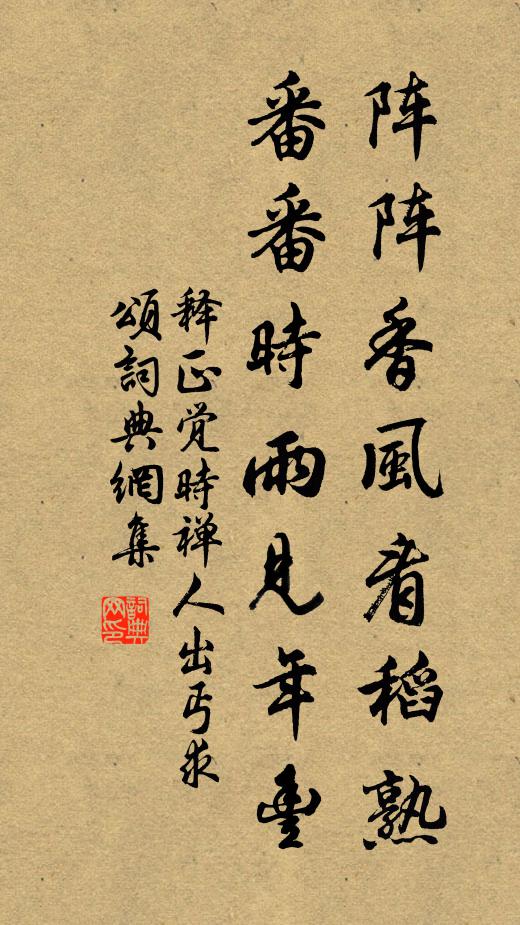 阵阵香風看稻熟
番番時雨見年豐
释正觉時禅人出丐求
頌詞典網集
詞典网印